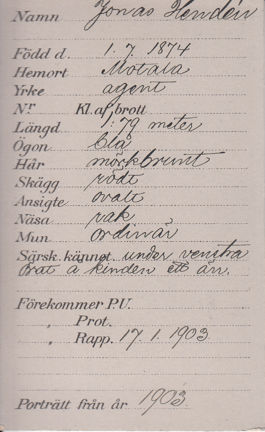 Namn Jonas Hendén
Född d. 1. 7 1874
Hemort Motala
Yrke agent
Nr Kl. af brott
Längd 1,79 meter
Ögon blå
Hår mörkbrunt
Skägg rödt
Ansigte ovalt
Näsa rak
Mun ordinär
Särsk. kännet. under venstra
örat å kinden ett ärr.
Förekommer P.U.
" Prot.
" Rapp. 17. 1. 1903.
Porträtt från år 1903